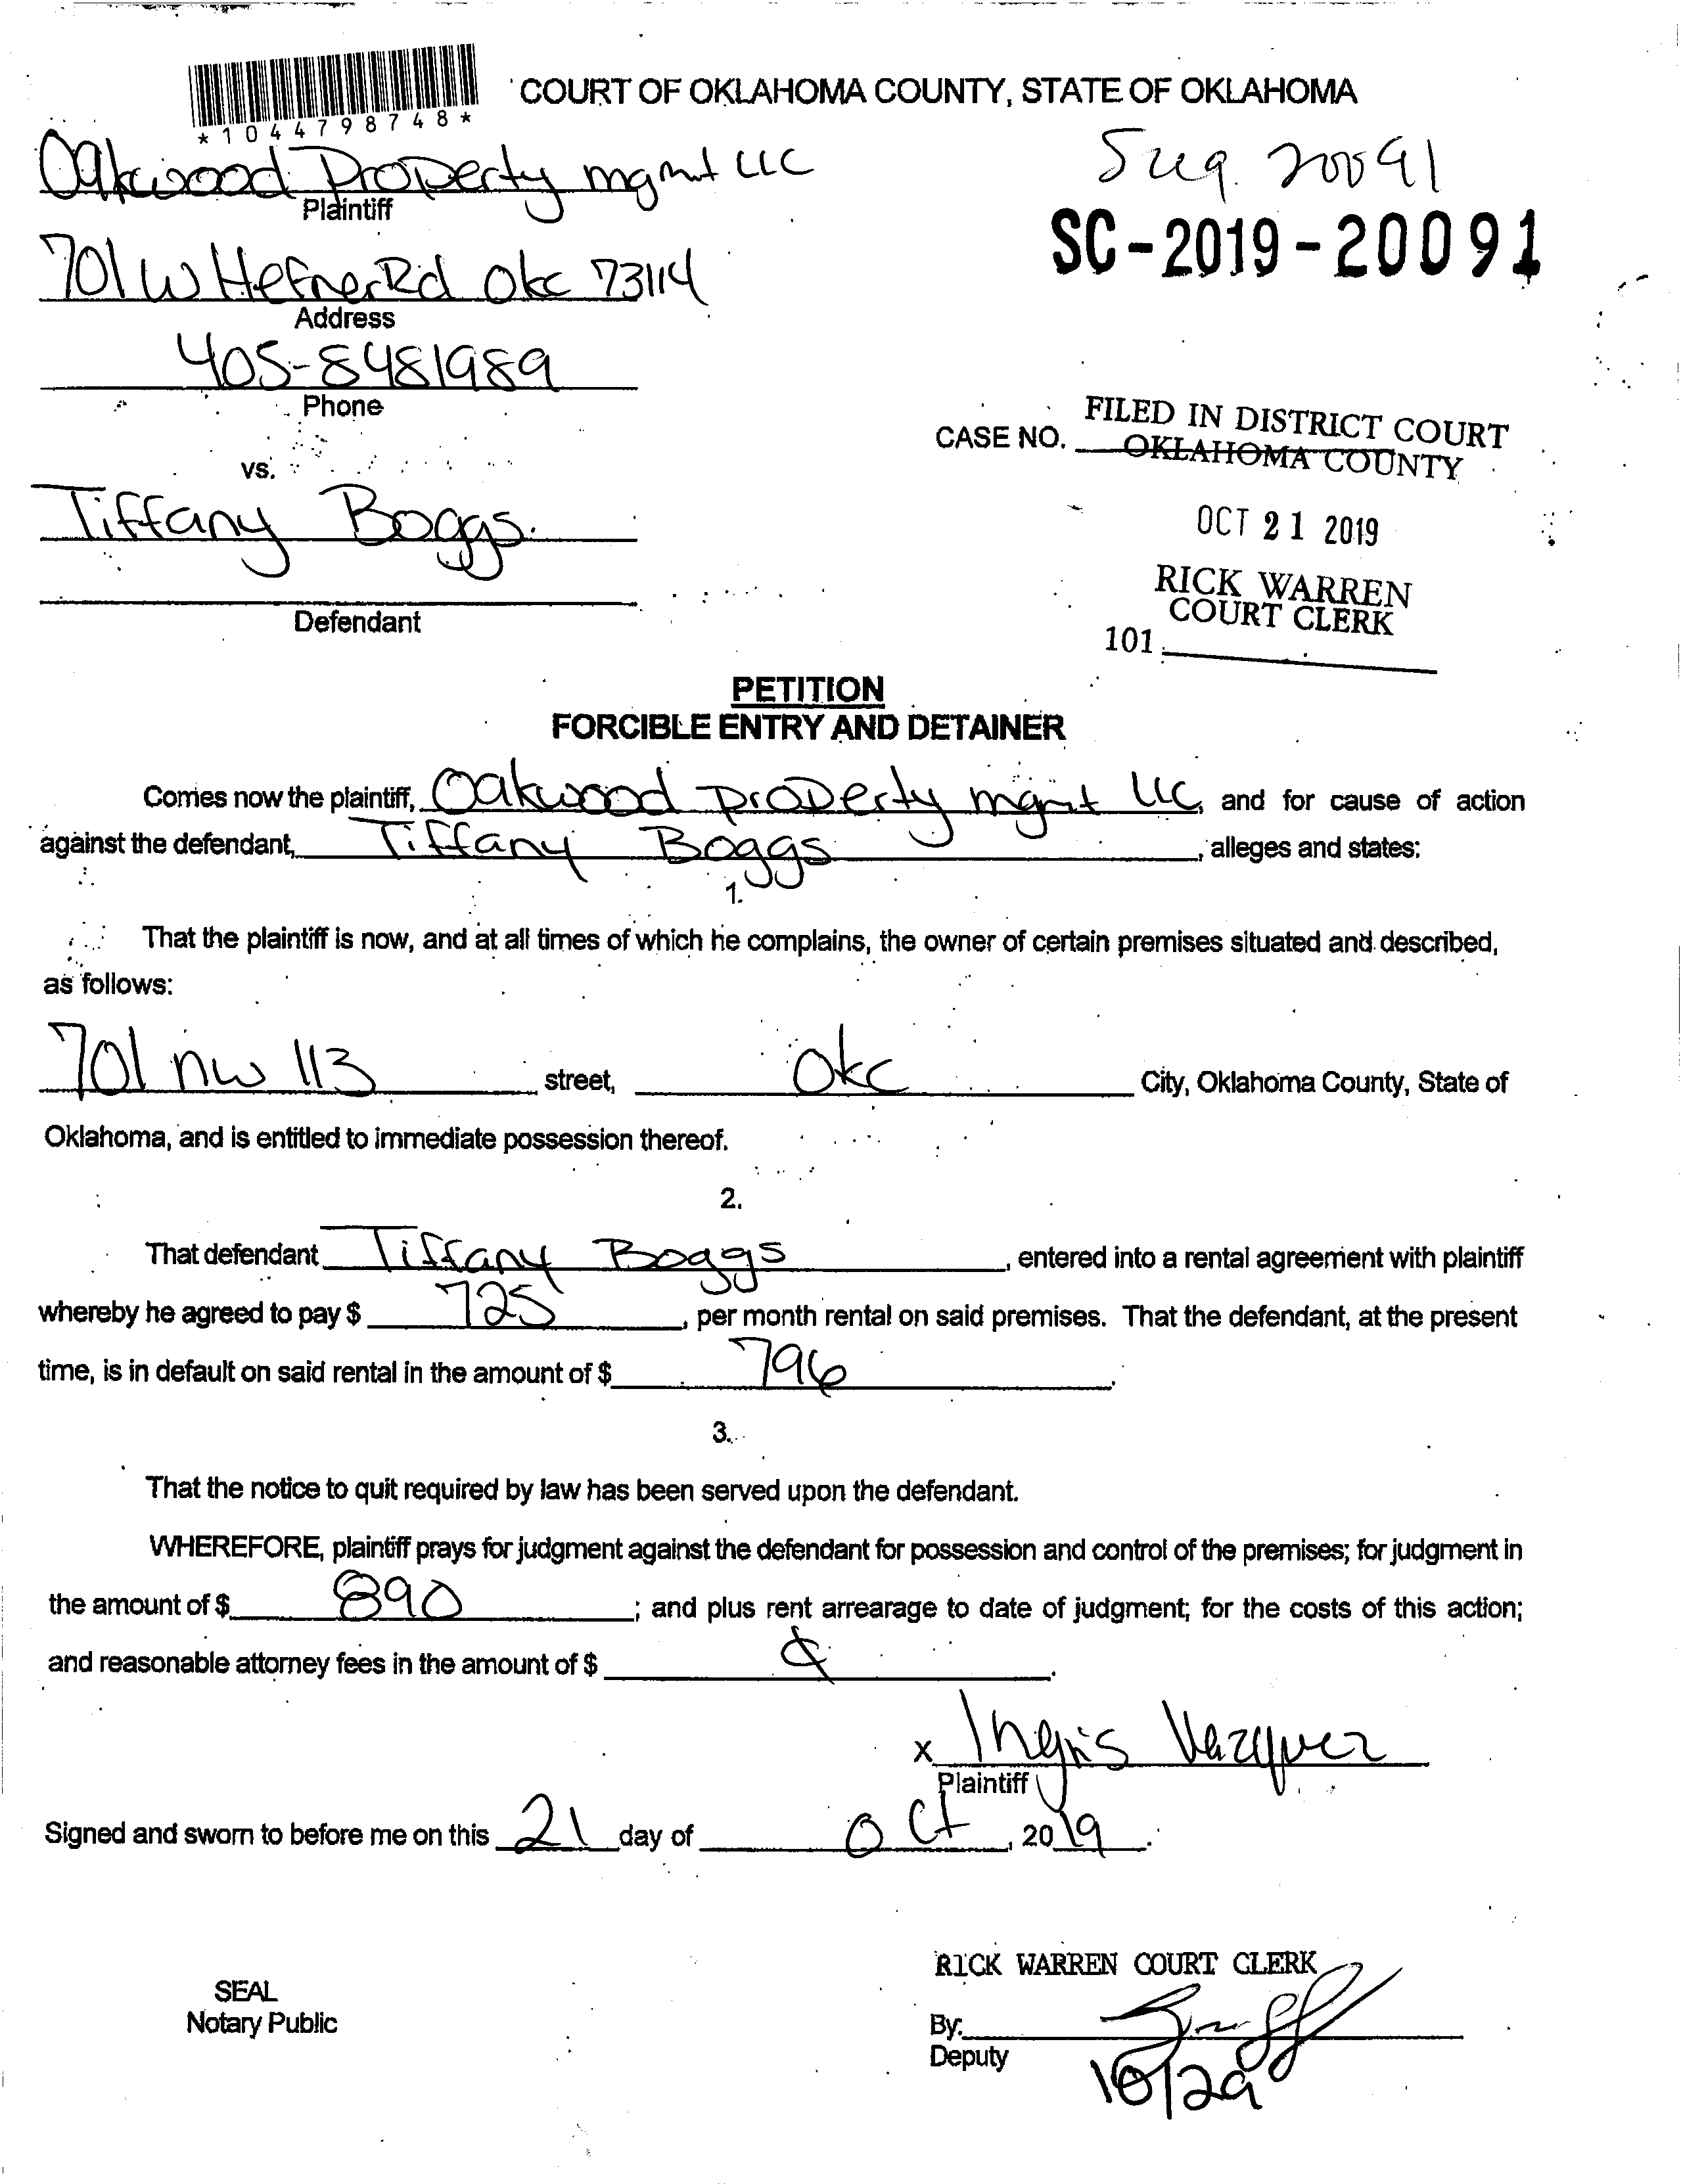 *1044798748*
COURT OF OKLAHOMA COUNTY, STATE OF OKLAHOMA
Oakwood Property mgmt LLC
Plaintiff
20091
SC-2019-20091
701 W Hefner Rd Okc 73114
Address
405-8481989
Phone
CASE NO.
FILED IN DISTRICT COURT
OKLAHOMA COUNTY
vs.
Tiffany Boggs.
OCT 21 2019
RICK WARREN
COURT CLERK
101
Defendant
PETITION
FORCIBLE ENTRY AND DETAINER
Comes now the plaintiff, Oakwood property mgmt LLC, and for cause of action
against the defendant, Tiffany Boggs, alleges and states:
1.
That the plaintiff is now, and at all times of which he complains, the owner of certain premises situated and described,
as follows:
701 nw 113 street, Okc City, Oklahoma County, State of
Oklahoma, and is entitled to immediate possession thereof.
2.
That defendant Tiffany Boggs, entered into a rental agreement with plaintiff
whereby he agreed to pay $ 725, per month rental on said premises. That the defendant, at the present
time, is in default on said rental in the amount of $ 796.
3.
That the notice to quit required by law has been served upon the defendant.
WHEREFORE, plaintiff prays for judgment against the defendant for possession and control of the premises; for judgment in
the amount of $ 890; and plus rent arrearage to date of judgment; for the costs of this action;
and reasonable attorney fees in the amount of $
x Vazquez
Plaintiff
Signed and sworn to before me on this 21 day of Oct, 2019.
RICK WARREN COURT CLERK
SEAL
Notary Public
By:
Deputy
10/29